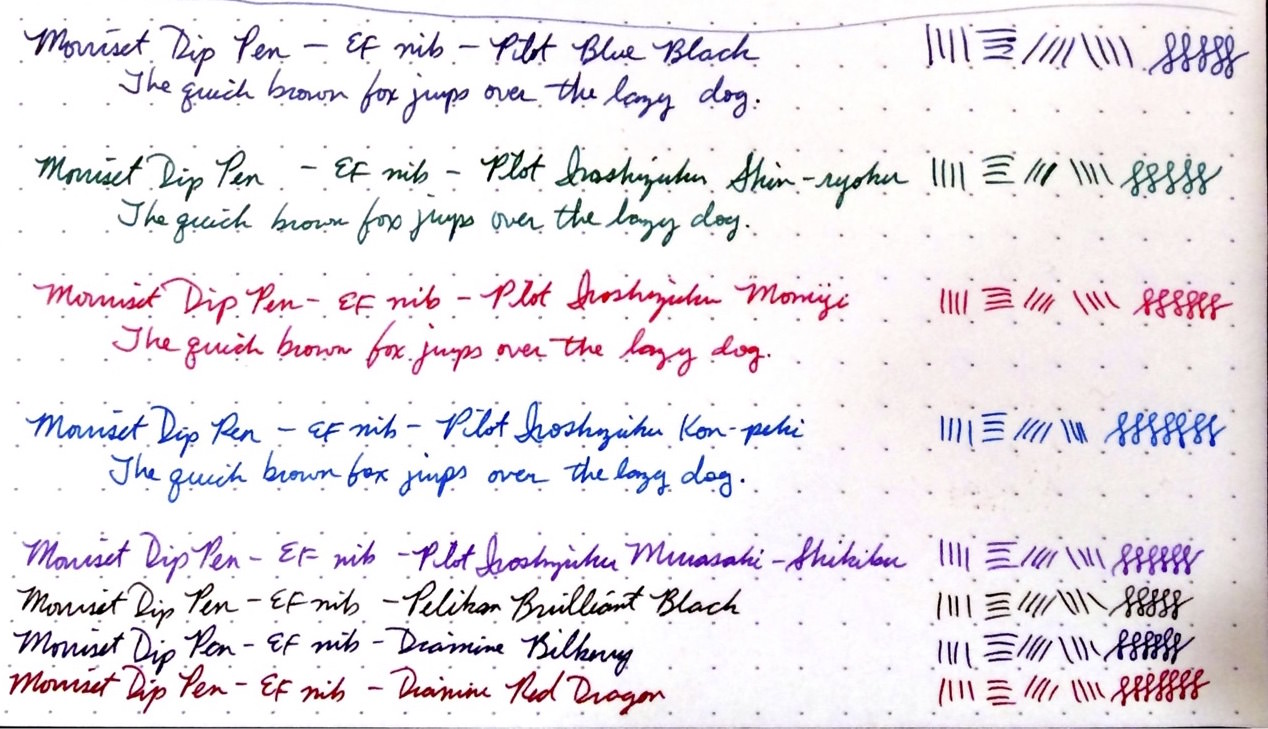 Morriset Dip Pen – EF nib – Pilot Blue Black
The quick brown fox jmps over the lazy dog.
Morriset Dip Pen – EF nib – Pilot Iroshizuku Shin-ryoku
The quick brown fox jmps over the lazy dog.
Morriset Dip Pen – EF nib – Pilot Iroshizuku Momiji
The quick brown fox jmps over the lazy dog.
Morriset Dip Pen – EF nib – Pilot Iroshizuku Kon-peki
The quick brown fox jmps over the lazy dog.
Morriset Dip Pen – EF nib – Pilot Iroshizuku Murasaki-Shikibu
Morriset Dip Pen – EF nib – Pelikan Brilliant Black
Morriset Dip Pen – EF nib – Diamine Bilberry
Morriset Dip Pen – EF nib – Diamine Red Dragon